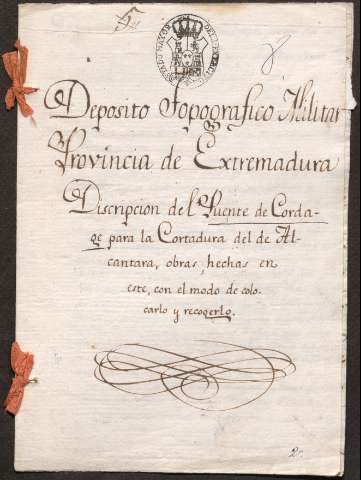 5
Deposito Topografico Militar
Provincia de Extremadura
Discripcion del Puente de Corda-
ge para la Cortadura del de Al-
cantara, obras, hechas en
este, con el modo de colo-
carlo y recogerlo.
2